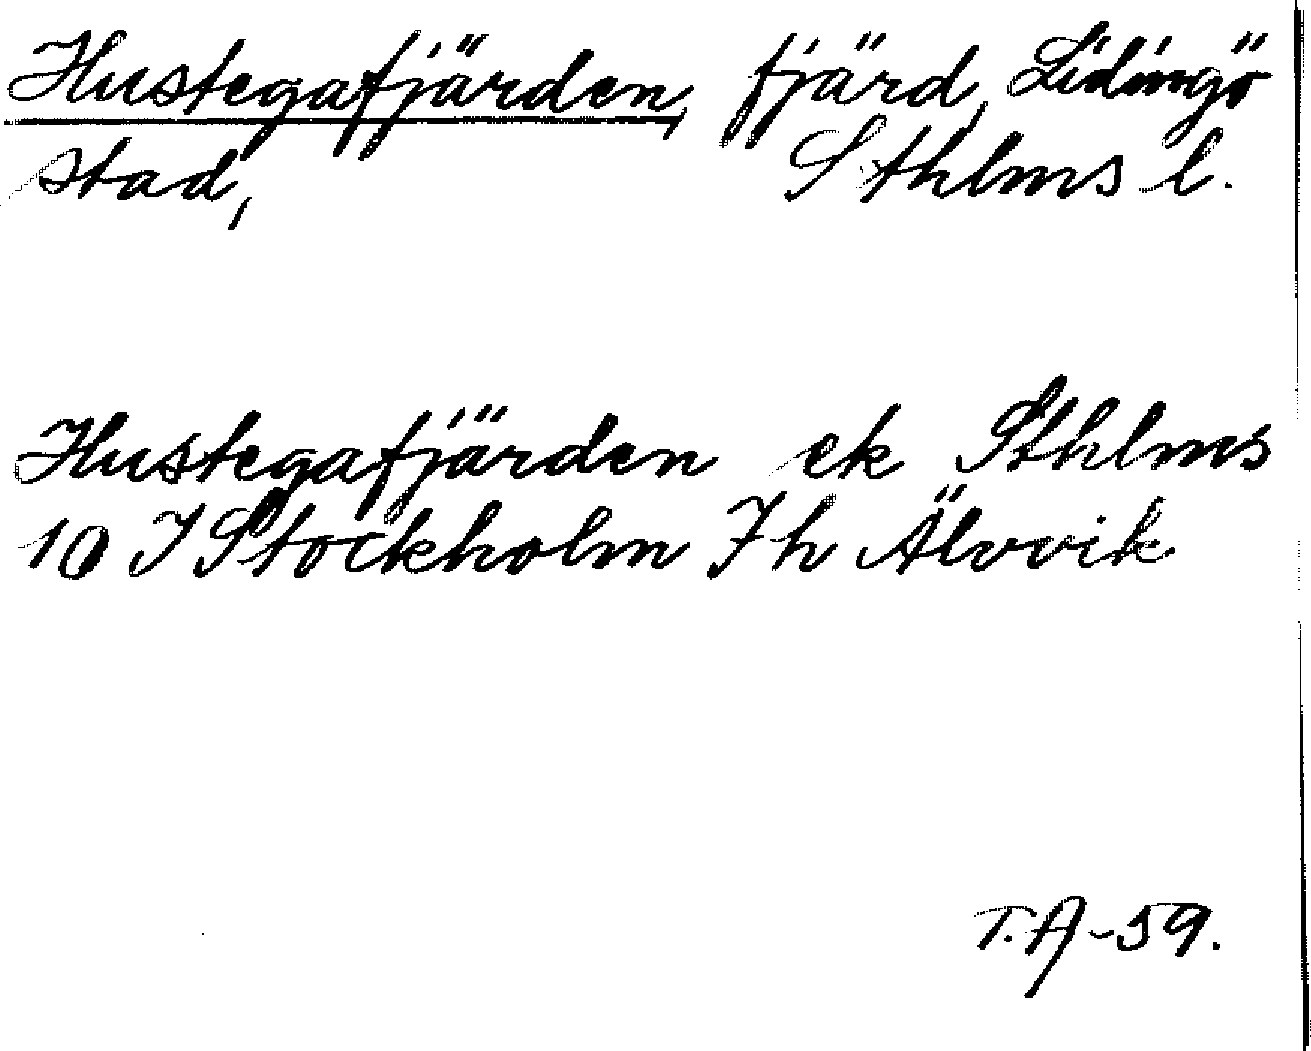 Hustegafjärden, fjärd, Lidingö
stad, Sthlms l.
Hustegafjärden ek Sthlms
10 I Stockholm 7h Älvvik
T.A-59.